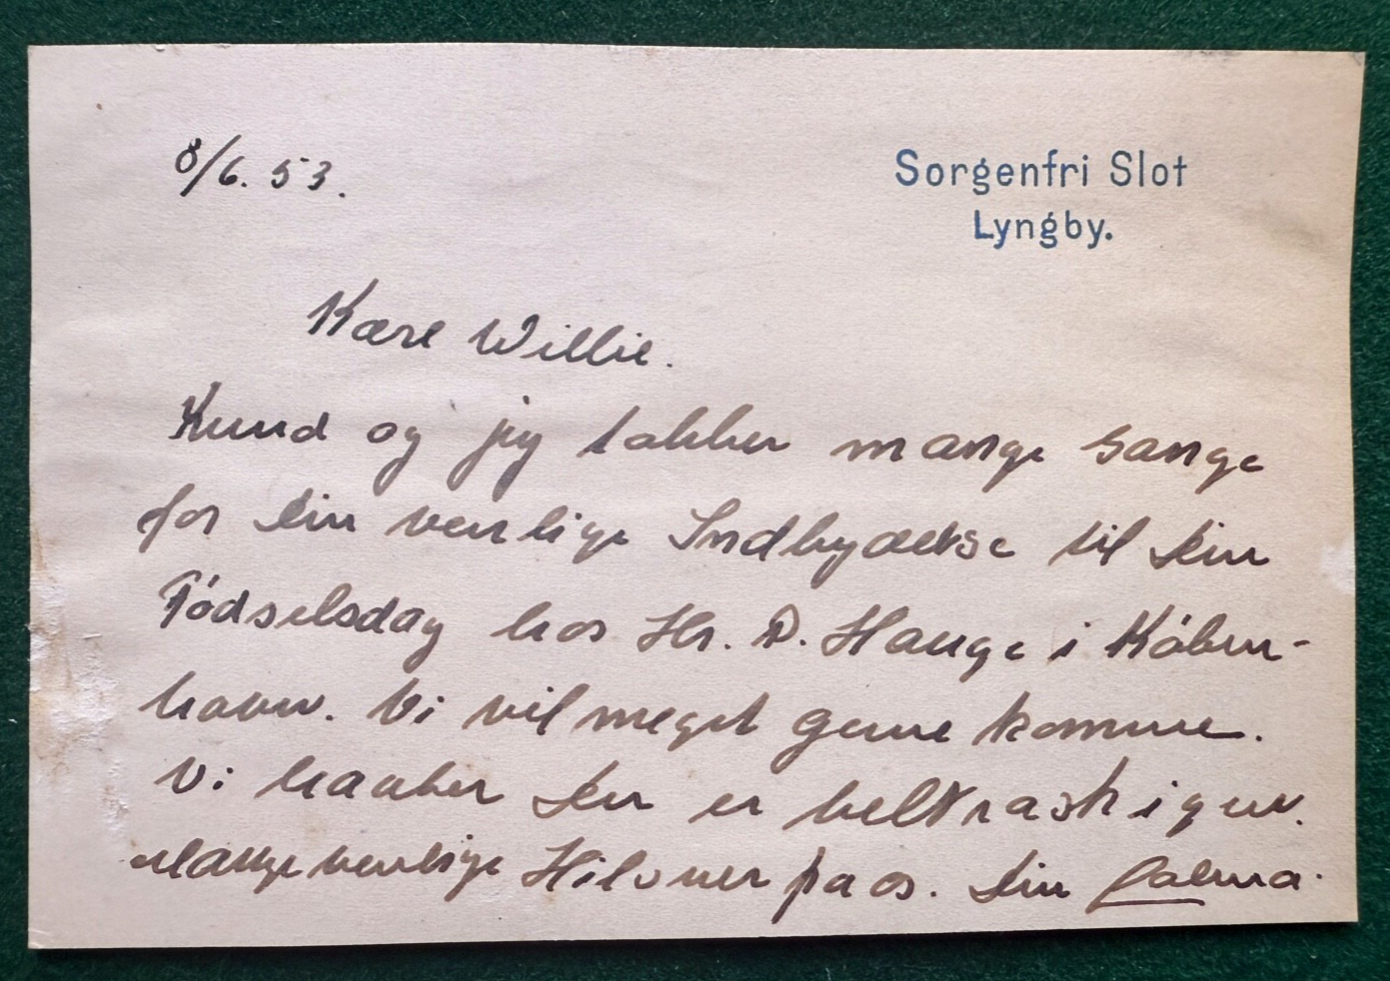 8/6. 53.
Sorgenfri Slot
Lyngby.
Kære Willie.
Knud og jeg takker mange Gange
for Din venlige Indbydelse til Din
Födselsdag hos Hr. P. Hauge i Köben-
havn. Vi vil meget gerne komme.
Vi haaber Du er helt rask igen.
Mange venlige Hilsner fra os. Din